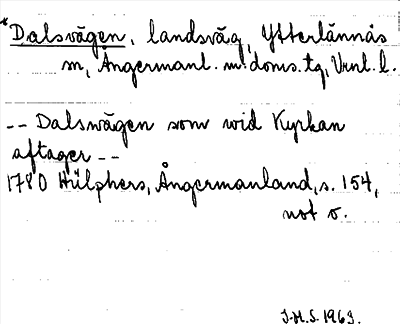 *Dalsvägen, landsväg, Ytterlännäs
m, Ångermanl. m:doms. tg, Vrnl. l.
-- Dalswägen som wid Kyrkan
aftager --
1780 Hülphers, Ångermanland, s. 154,
not v.
J.H.S. 1963.